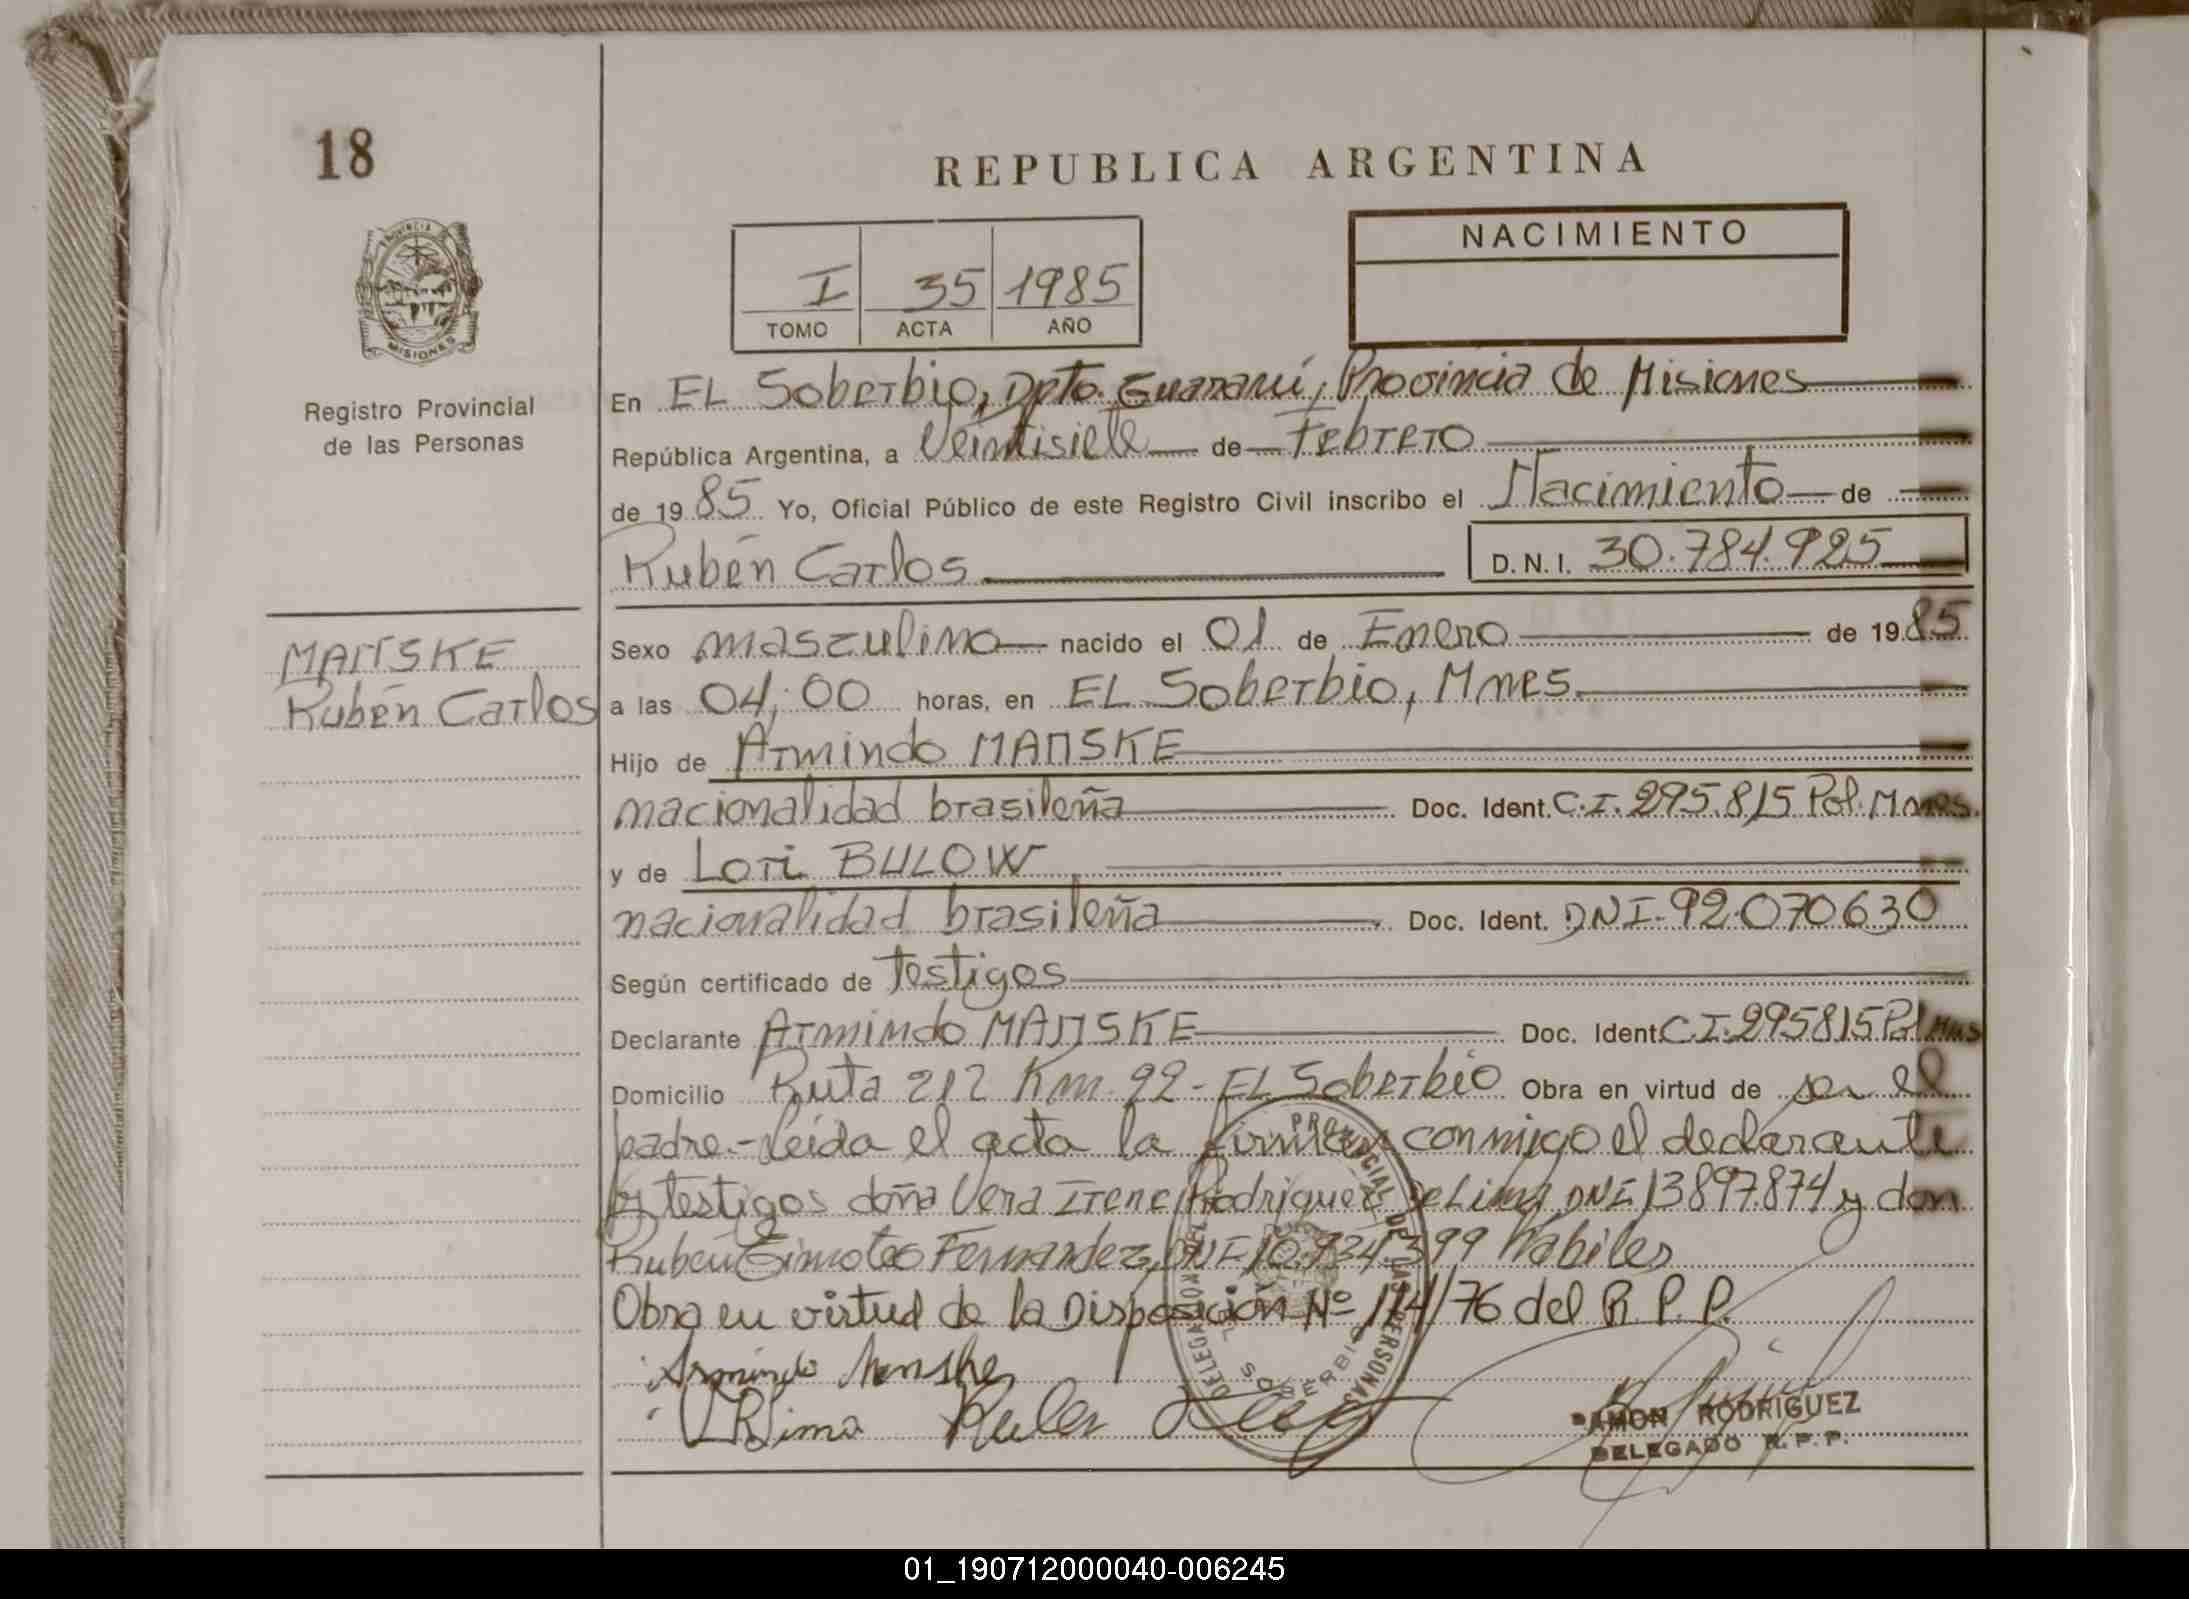 18
REPUBLICA ARGENTINA
PROVINCIA
MISIONES
Registro Provincial
de las Personas
NACIMIENTO
I 35 1985
TOMO ACTA AÑO
En EL Soberbio, Dpto. Guaraní, Provincia de Misiones
República Argentina, a Veintisiete de Febrero
de 1985 Yo, Oficial Público de este Registro Civil inscribo el Nacimiento de
Rubén Carlos D.N.I. 30.784.925
MANSKE
Rubén Carlos
Sexo masculino nacido el 01 de Enero de 1985
a las 04;00 horas, en EL Soberbio, Mnes.
Hijo de Armindo MANSKE
nacionalidad brasileña Doc. Ident. C.I. 295.815 Pol. Mnes.
y de Lori BULOW
nacionalidad brasileña Doc. Ident. DNI-92.070630
Según certificado de Testigos
Declarante Armindo MANSKE Doc. Ident. C.I. 295815 Pol Mns
Domicilio Ruta 212 Km. 92 - EL Soberbio Obra en virtud de ser el
padre.- Leida el acta la firman conmigo el declarante
y testigos doña Vera Irene Rodriguez De Lima DNI 13897.874 y don
Rubén Timoteo Fernandez, DNI 10.934.399 Habiles
Obra en virtud de la Disposición Nº 114/76 del R.P.P.
Armindo Manske
VRLima Ruben
RAMON RODRIGUEZ
DELEGADO R.P.P.
PROVINCIAL DE LAS PERSONAS
EL SOBERBIO
01_190712000040-006245